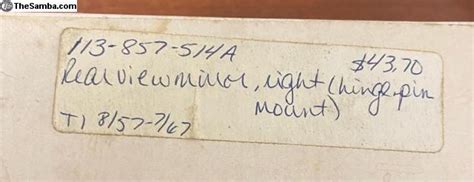 TheSamba.com
113-857-514A $43.70
Rearview mirror, right (hinge-pin
mount)
T1 8/57-7/67